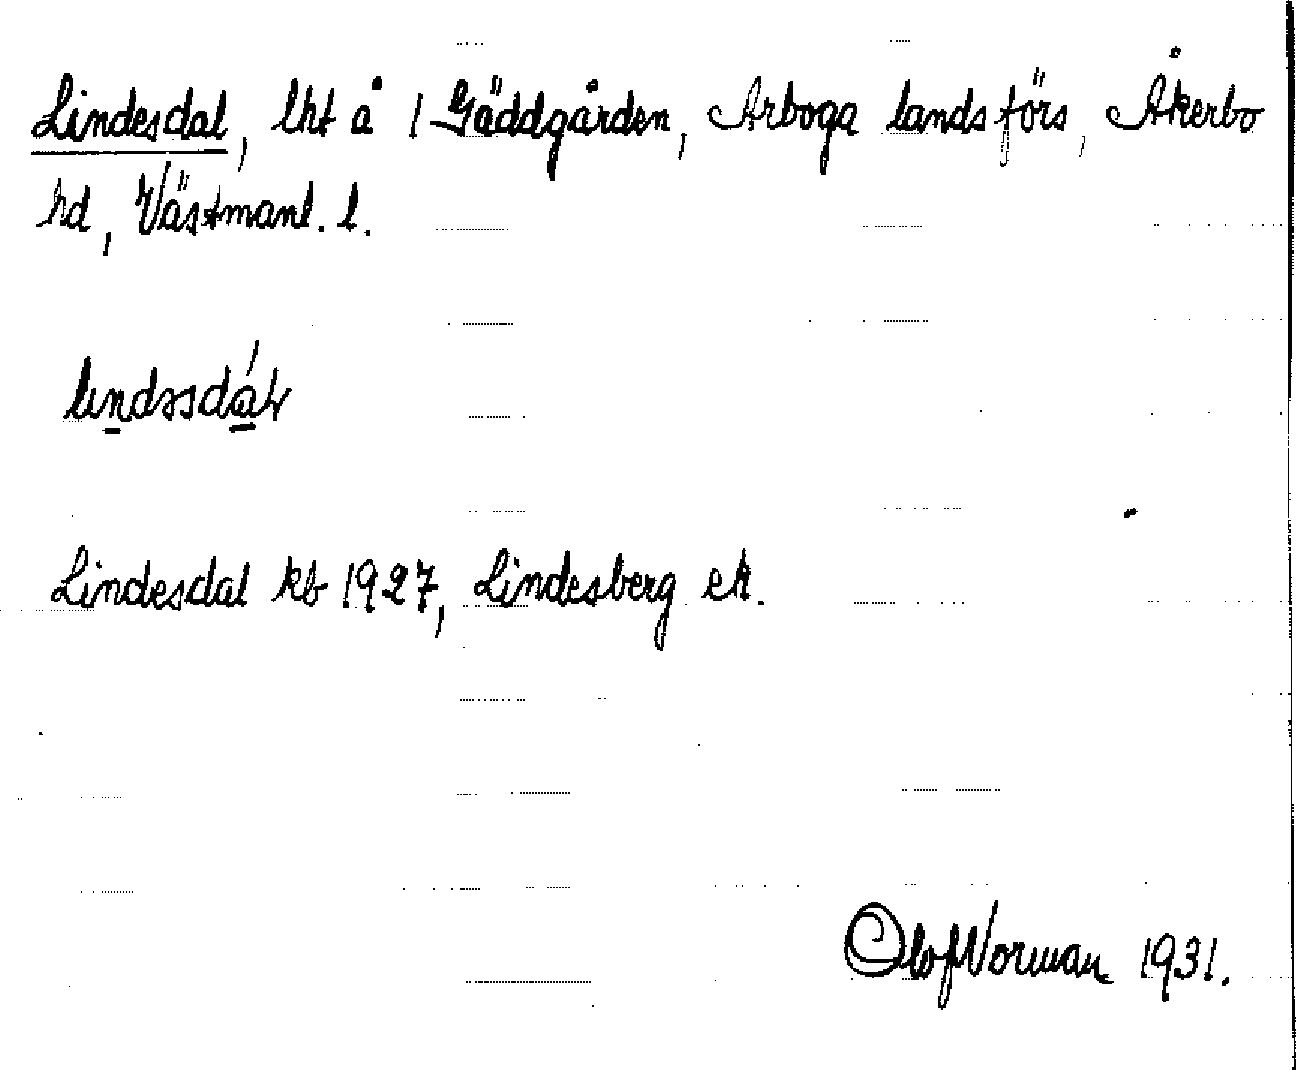 Lindesdal, lht å 1 Gäddgården, Arboga landsförs, Åkerbo
hd, Västmanl. l.
Lindesdal kb 1927, Lindesberg ek.
Olof Norman 1931.